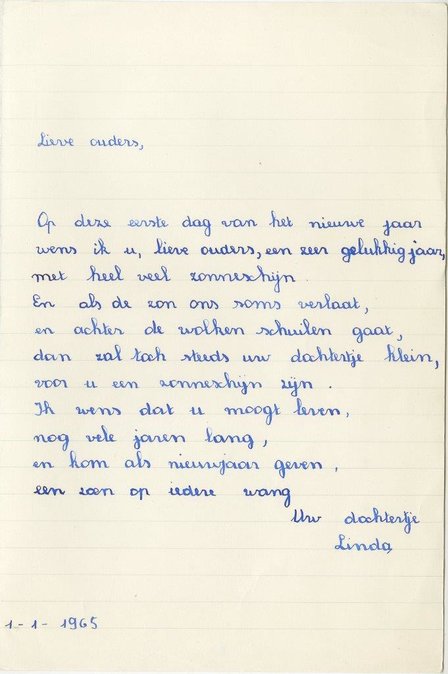 Lieve ouders,
Op deze eerste dag van het nieuwe jaar
wens ik u, lieve ouders, een zeer gelukkig jaar,
met heel veel zonneschijn.
En als de zon ons soms verlaat,
en achter de wolken schuilen gaat,
dan zal toch steeds uw dochtertje klein,
voor u een zonneschijn zijn.
Ik wens dat u moogt leven,
nog vele jaren lang,
en kom als nieuwjaar geven,
een zoen op iedere wang
Uw dochtertje
Linda,
1-1-1965